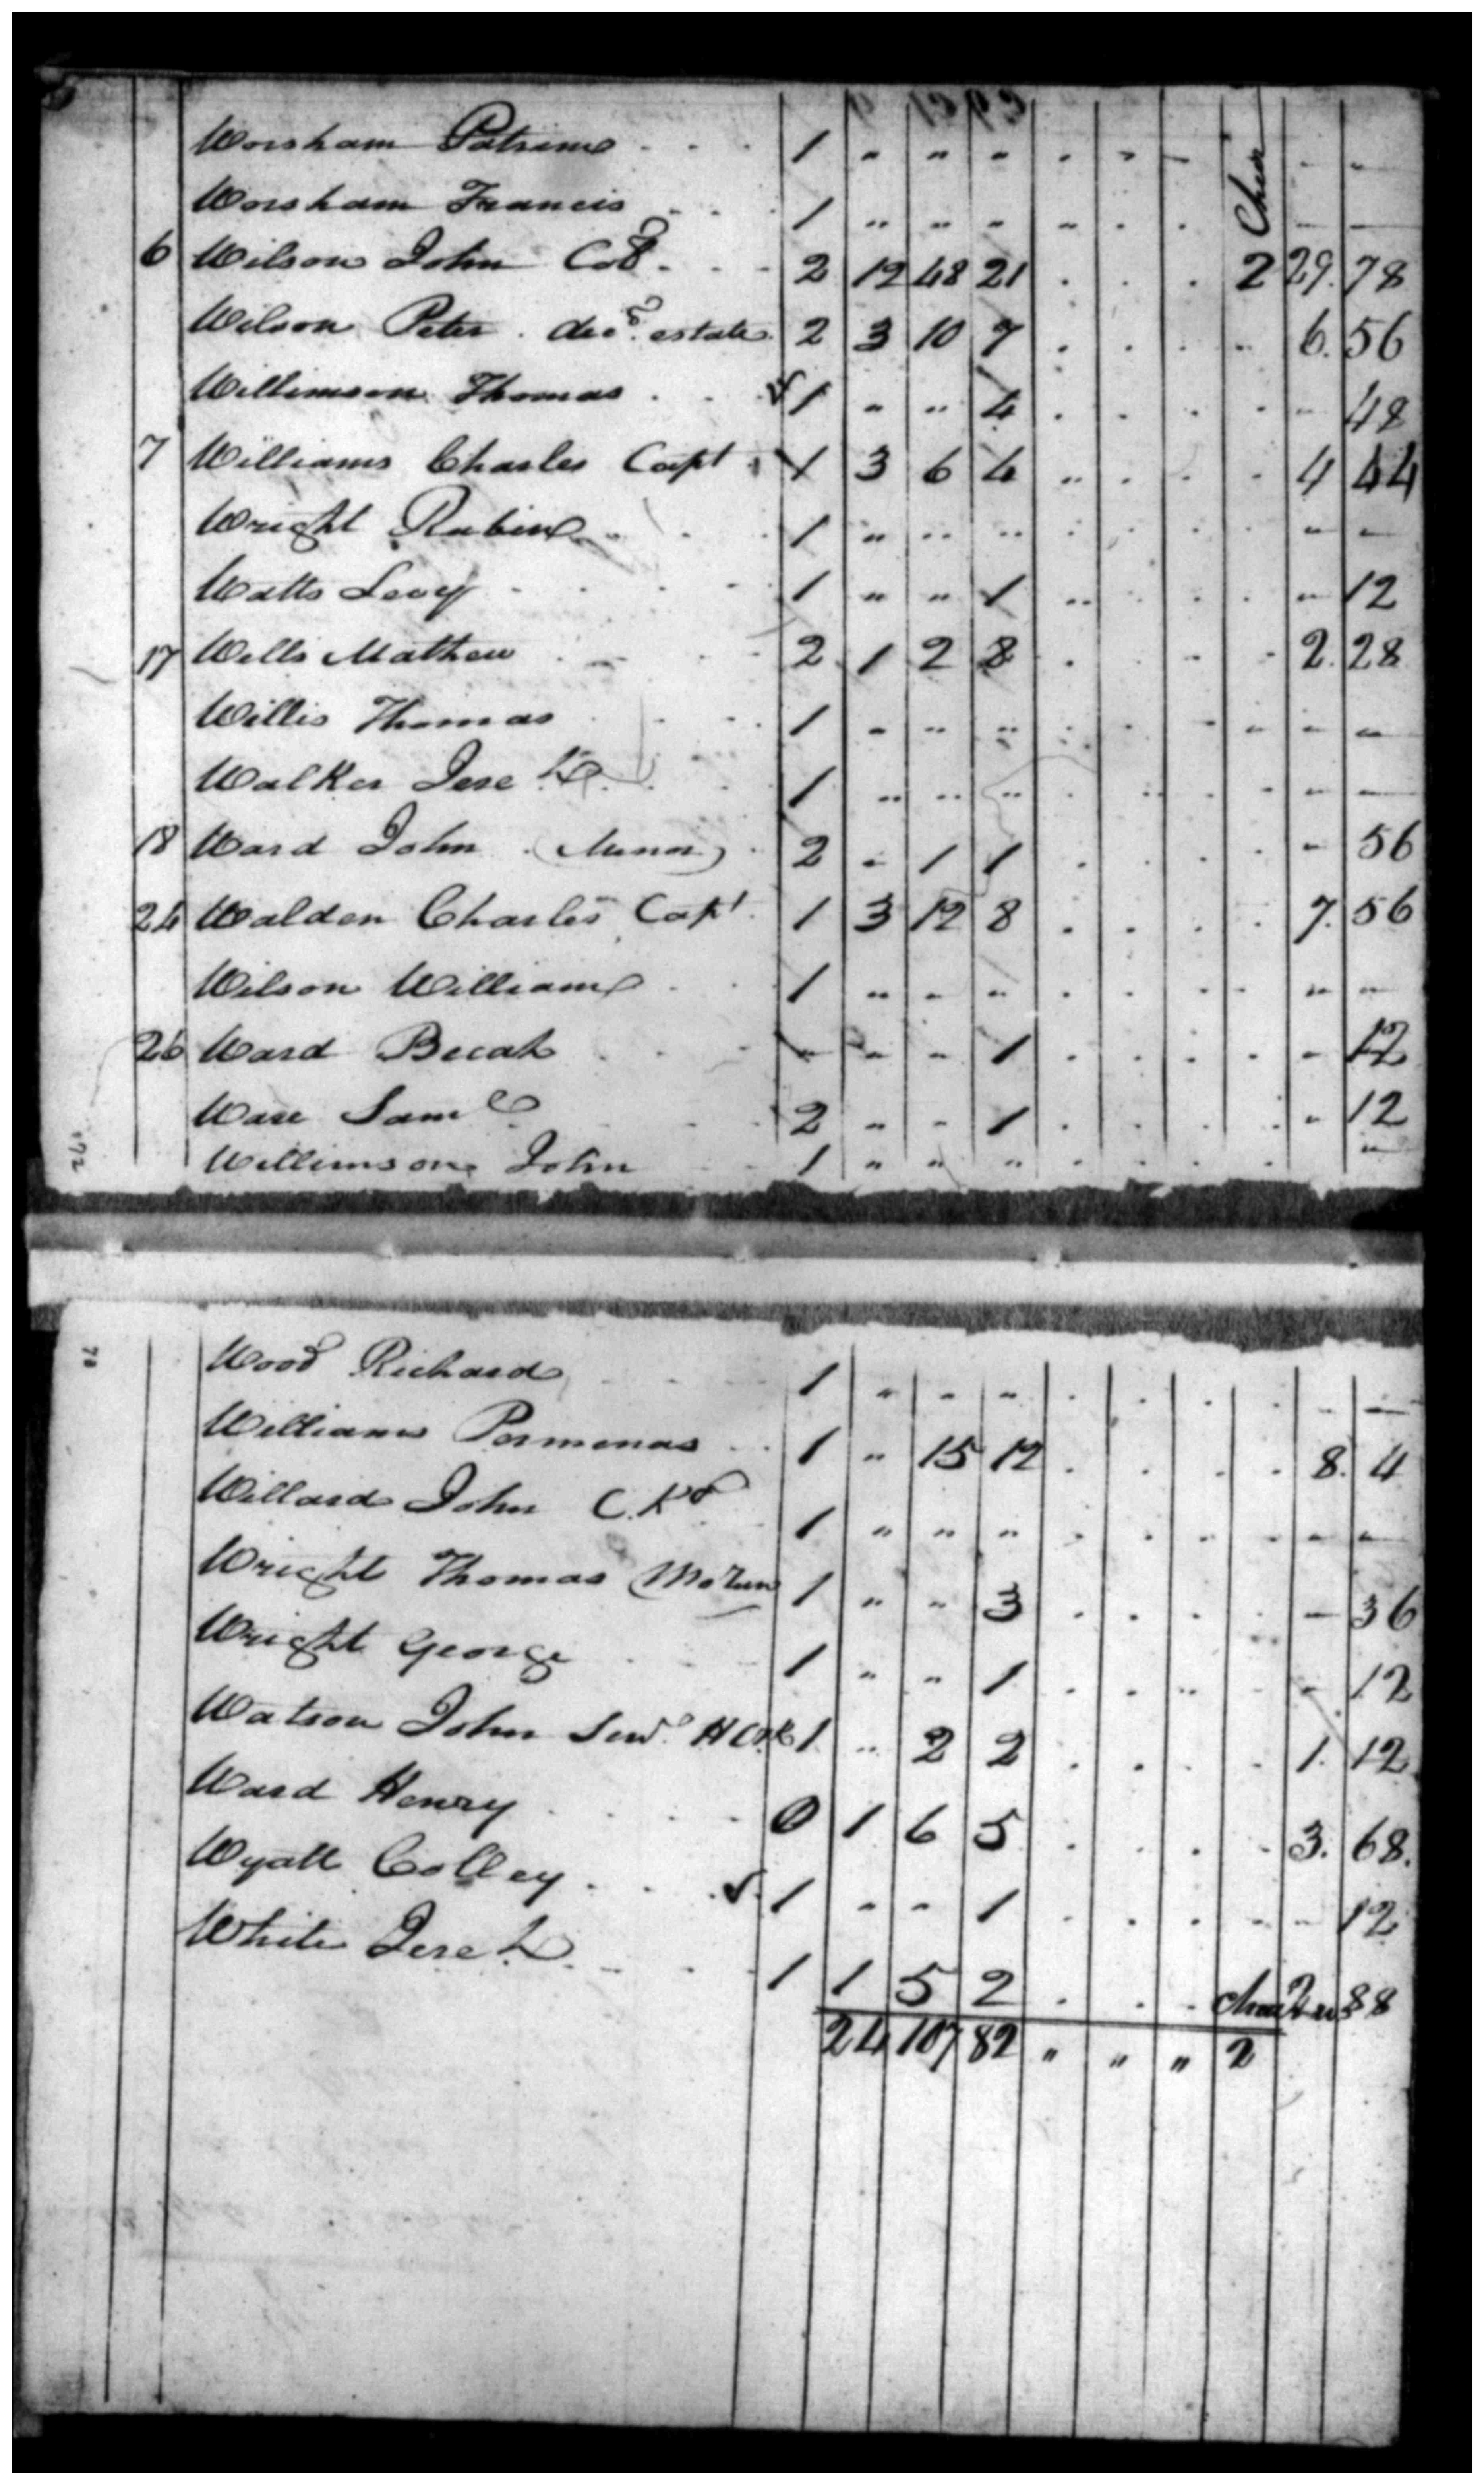 Chair
Worsham 1 " " " . . . - -
Worsham Francis 1 " " " . . . - -
6 Wilson John Col 2 12 48 21 . . . 2 29. 78
Wilson Peter decd estate 2 3 10 7 . . . . 6. 56
Willimson Thomas 1 " " 4 . . . . - 48
7 Williams Charles Capt 1 3 6 4 . . . . 4 44
Wright Rubin 1 " " " . . . - -
Watts Levy 1 " " 1 . . . . - 12
17 Wells Mathew 2 1 2 8 . . . . 2. 28
Willis Thomas 1 " " " . . . . - -
Walker Jereh 1 " " " . . . . - -
18 Ward John (Minor) 2 - 1 1 . . . . - 56
24 Walden Charles Capt 1 3 12 8 . . . . 7. 56
Wilson William 1 " " " . . . . - -
26 Ward - - - 1 . . . . - 12
Ware Saml 2 " " 1 . . . . - 12
Willimson John 1 " " " . . . . -
Wood Richard 1 " " " . . . . - -
Williams Parmenas 1 " 15 12 . . . . 8. 4
Willard John C.Kd 1 " " " . . . . - -
Wright Thomas 1 " " 3 . . . . - 36
Wright George 1 " " 1 . . . . - 12
Watson John 1 " 2 2 . . . . 1. 12
Ward Henry 0 1 6 5 . . . . 3. 68.
Wyatt Colley 1 - - 1 . . . . - 12
White Jereh 1 1 5 2 . . . 88
24 107 82 " " " 2